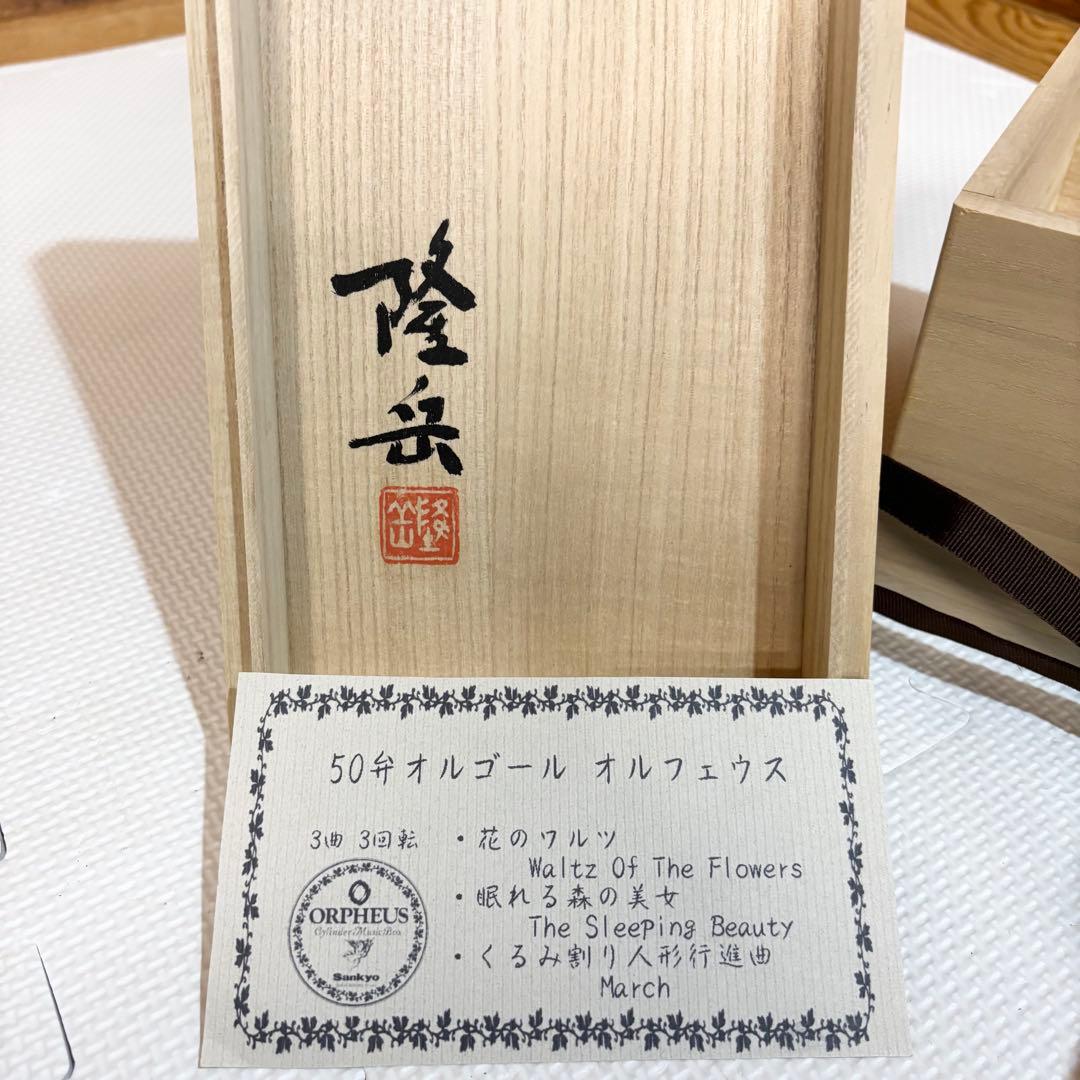 隆
岳
隆岳
50弁オルゴール オルフェウス
3曲 3回転
・花のワルツ
Waltz Of The Flowers
・眠れる森の美女
The Sleeping Beauty
・くるみ割り人形行進曲
March
ORPHEUS
Cylinder Music Box
Sankyo